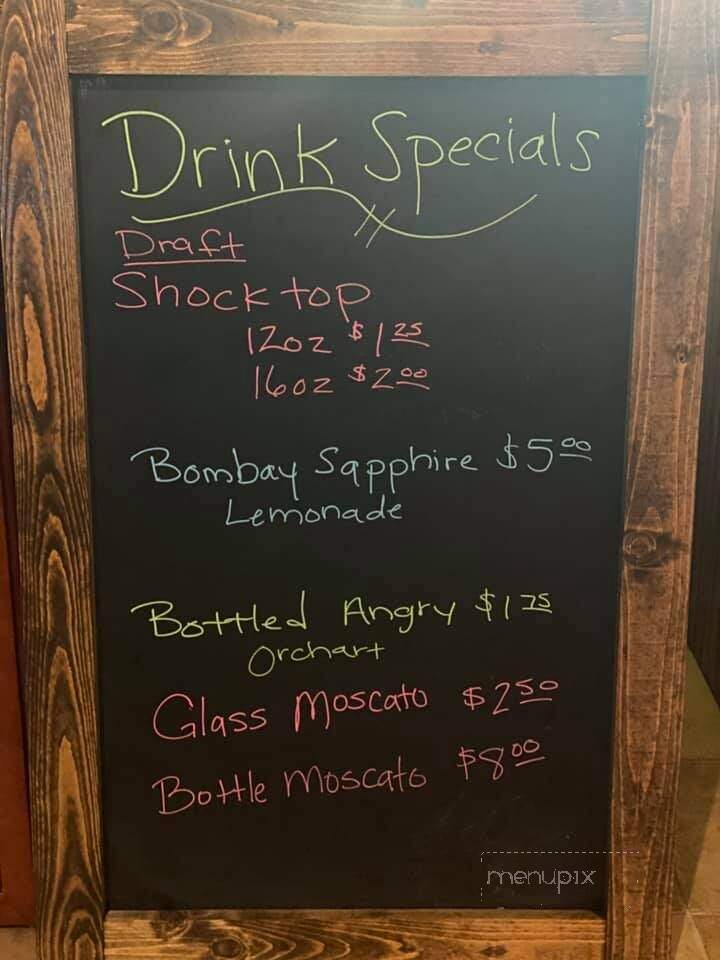 Drink Specials
Draft
Shock top
12oz $1.25
16oz $2.00
Bombay Sapphire $5.00
Lemonade
Bottled Angry $1.75
Orchart
Glass Moscato $2.50
Bottle Moscato $8.00
menupix